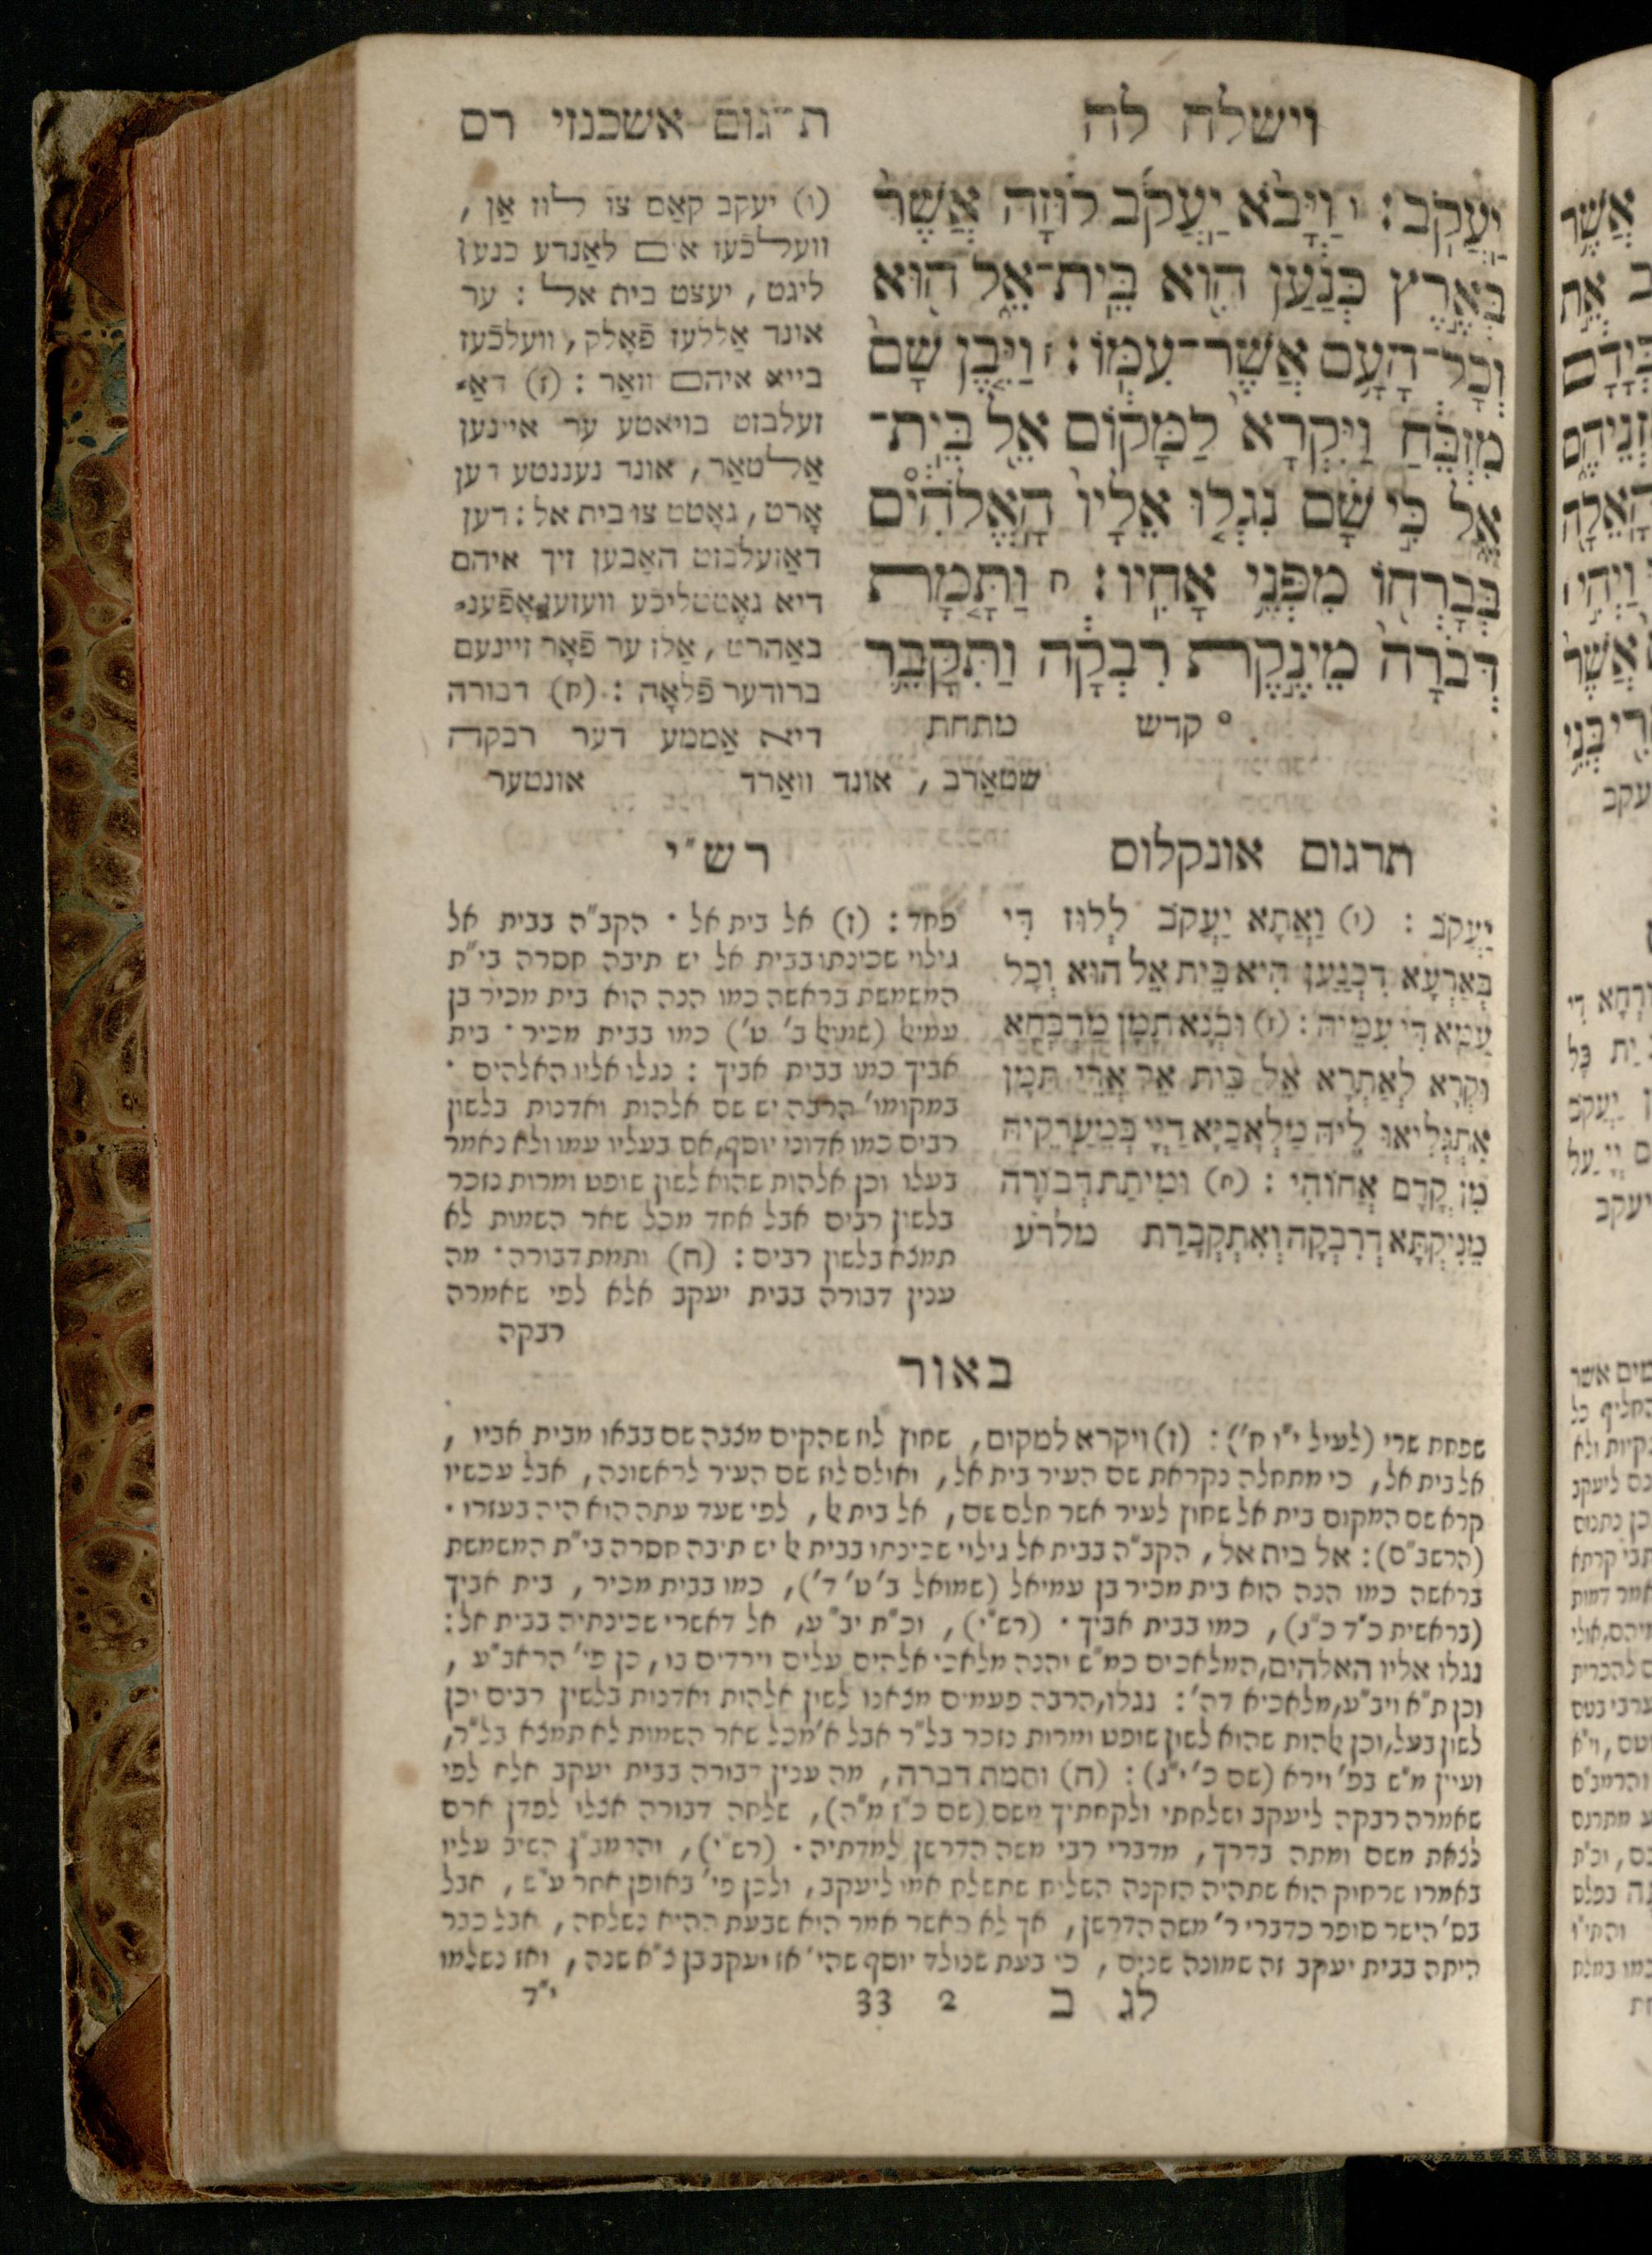 וישלח לה
תרגום אשכנזי רס
יַעֲקֹב׃ ו וַיָּבֹא יַעֲקֹב לוּזָה אֲשֶׁר
בְּאֶרֶץ כְּנַעַן הִוא בֵּית־אֵל הוּא
וְכָל־הָעָם אֲשֶׁר־עִמּוֹ׃ ז וַיִּבֶן שָׁם
מִזְבֵּחַ וַיִּקְרָא לַמָּקוֹם אֵל בֵּית־
אֵל כִּי שָׁם נִגְלוּ אֵלָיו הָאֱלֹהִים
בְּבָרְחוֹ מִפְּנֵי אָחִיו׃ ח וַתָּמָת
דְּבֹרָה מֵינֶקֶת רִבְקָה וַתִּקָּבֵר
° קדש מתחת
(ו) יעקב קאַם צו לוז אַן,
וועלכֿעז אים לאַנדע כנען
ליגט, יעצט בית אל : ער
אונד אַללעז פֿאָלק, וועלכֿעז
בייא איהם וואַר : (ז) דאַ-
זעלבזט בויאטע ער איינען
אַלטאַר, אונד נעננטע דען
אָרט, גאָטט צו בית אל : דען
דאַזעלבזט האַבען זיך איהם
דיא געֶטטליכֿע וועזען אָפֿענ-
באַהרט, אַלז ער פֿאָר זיינעם
ברודער פֿלאָה : (ח) דבורה
דיא אַממע דער רבקה
שטאַרב, אונד וואַרד אונטער
תרגום אונקלוס
יַעֲקֹב : (ו) וַאֲתָא יַעֲקֹב לְלוּז דִּי
בְּאַרְעָא דִכְנַעַן הִיא בֵּית אֵל הוּא וְכָל
עַמָּא דִי עִמֵּיהּ : (ז) וּבְנָא תַמָּן מַדְבְּחָא
וּקְרָא לְאַתְרָא אֵל בֵּית אֵל אֲרֵי תַמָּן
אִתְגְּלִיאוּ לֵיהּ מַלְאֲכַיָּא דַיְיָ בְּמֵעַרְקֵיהּ
מִן קֳדָם אֲחוּהִי : (ח) וּמִיתַת דְּבוֹרָה
מֵנִיקְתָּא דְרִבְקָה וְאִתְקְבָרַת מלרע
רש"י
פחד : (ז) אל בית אל · הקב"ה בבית אל
גילוי שכינתו בבית אל יש תיבה חסרה בי"ת
המשמשת בראשה כמו הנה הוא בית מכיר בן
עמיאל (שמואל ב' ט') כמו בבית מכיר · בית
אביך כמו בבית אביך : נגלו אליו האלהים ·
במקומו' הרבה יש שם אלהות ואדנות בלשון
רבים כמו אדוני יוסף, אם בעליו עמו ולא נאמר
בעלו וכן אלהות שהוא לשון שופט ומרות נזכר
בלשון רבים אבל אחד מכל שאר השמות לא
תמצא בלשון רבים : (ח) ותמת דבורה · מה
ענין דבורה בבית יעקב אלא לפי שאמרה
רבקה
באור
שפחת שרי (לעיל י"ו ח') : (ז) ויקרא למקום, שחוץ לוז שהקים מצבה שם בבאו מבית אביו,
אל בית אל, כי מתחלה נקראת שם העיר בית אל, ואולם לוז שם העיר לראשונה, אבל עכשיו
קרא שם המקום בית אל שחוץ לעיר אשר חלם שם, אל בית אל, לפי שעד עתה הוא היה בעזרו ·
(הרשב"ם) : אל בית אל, הקב"ה בבית אל גילוי שכינתו בבית אל יש תיבה חסרה בי"ת המשמשת
בראשה כמו הנה הוא בית מכיר בן עמיאל (שמואל ב' ט' ד'), כמו בבית מכיר, בית אביך
(בראשית כ"ד כ"ג), כמו בבית אביך · (רש"י), וכ"ת יב"ע, אל דאשרי שכינתיה בבית אל :
נגלו אליו האלהים, המלאכים כמ"ש והנה מלאכי אלהים עלים וירדים בו, כן פי' הראב"ע,
וכן ת"א ויב"ע, מלאכיא דה' : נגלו, הרבה פעמים מצאנו לשון אלהות ואדנות בלשון רבים וכן
לשון בעל, וכן אלהות שהוא לשון שופט ומרות נזכר בל"ר אבל א' מכל שאר השמות לא תמצא בל"ר,
ועיין מ"ש בפ' וירא (שם כ' י"ג) : (ח) ותמת דברה, מה ענין דבורה בבית יעקב אלא לפי
שאמרה רבקה ליעקב ושלחתי ולקחתיך משם (שם כ"ז מ"ה), שלחה דבורה אצלו לפדן ארם
לצאת משם ומתה בדרך, מדברי רבי משה הדרשן למדתיה · (רש"י), והרמב"ן השיב עליו
באמרו שרחוק הוא שתהיה הזקנה השליח שתשלח אמו ליעקב, ולכן פי' באופן אחר ע"ש, אבל
בס' הישר סופר כדברי ר' משה הדרשן, אך לא כאשר אמר היא שבעת ההיא נשלחה, אבל כבר
היתה בבית יעקב זה שמונה שנים, כי בעת שנולד יוסף שהי' אז יעקב בן צ"א שנה, ואז נשלמו
לג ב 2 33 י"ד